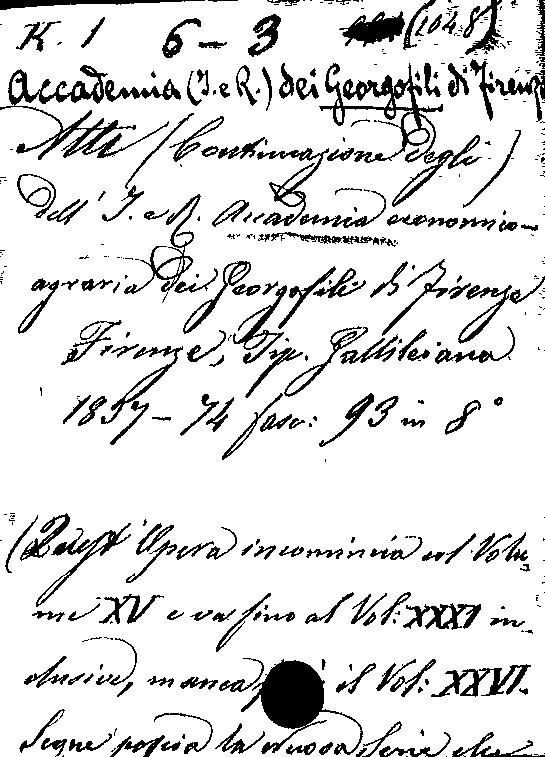 K. 1 6 - 3 (1048)
Accademia (I. e R.) dei Georgofili di Firenze
Atti (Continuazione degli)
dell' I. e R. Accademia economico-
agraria dei Georgofili di Firenze
Firenze, Tip. Gallileiana
1837 - 74 fasc: 93 in 8°
(Quest' Opera incomincia col Volu
me XV e va fino al Vol: XXXI in
clusive, manca il Vol: XXVI.
Segue poscia la nuova Serie che